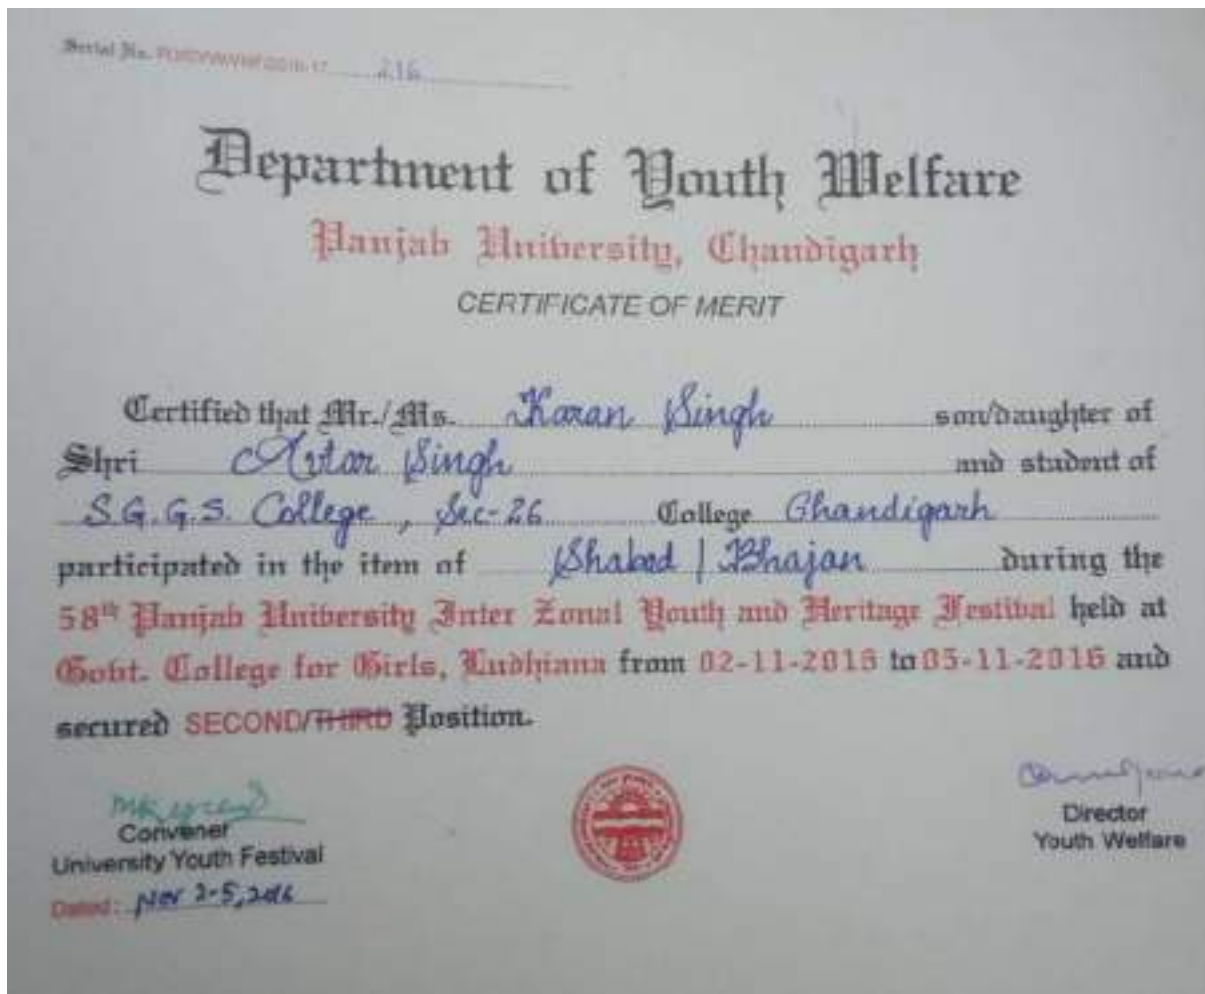 Serial No. 216
Department of Youth Welfare
Panjab University, Chandigarh
CERTIFICATE OF MERIT
Certified that Mr./Ms. Karan Singh son/daughter of
Shri Avtar Singh and student of
S.G.G.S. College, Sec-26 College Chandigarh
participated in the item of Shabad / Bhajan during the
58th Panjab University Inter Zonal Youth and Heritage Festival held at
Govt. College for Girls, Ludhiana from 02-11-2016 to 05-11-2016 and
secured SECOND/THIRD Position.
Convener
University Youth Festival
Dated: Nov 2-5, 2016
Director
Youth Welfare